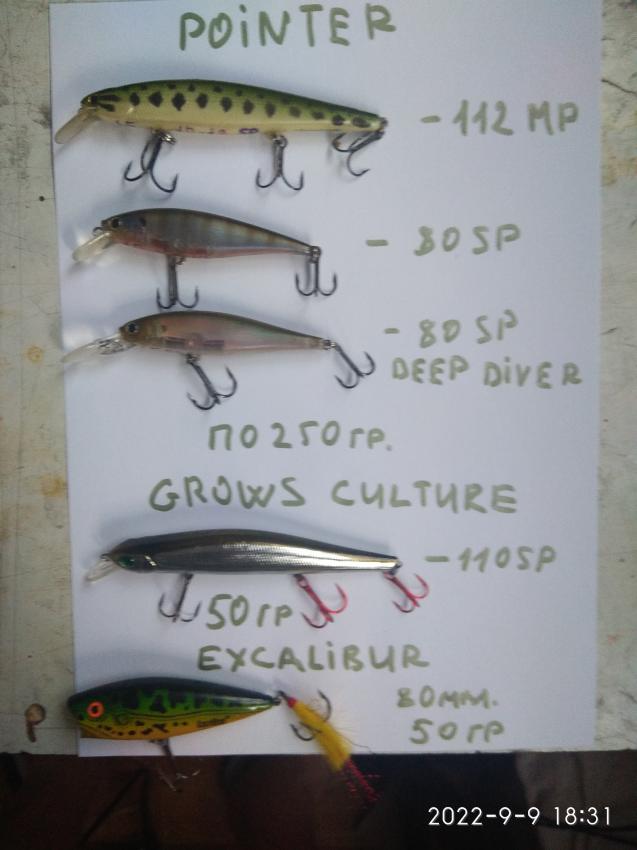 POINTER
- 112 MP
- 80 SP
- 80 SP
DEEP DIVER
ПО 250 гр.
GROWS CULTURE
- 110SP
50гр
EXCALIBUR
80мм.
50 гр
2022-9-9 18:31